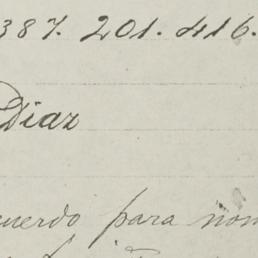 387. 201. 416.
Diaz
cuerdo para nom